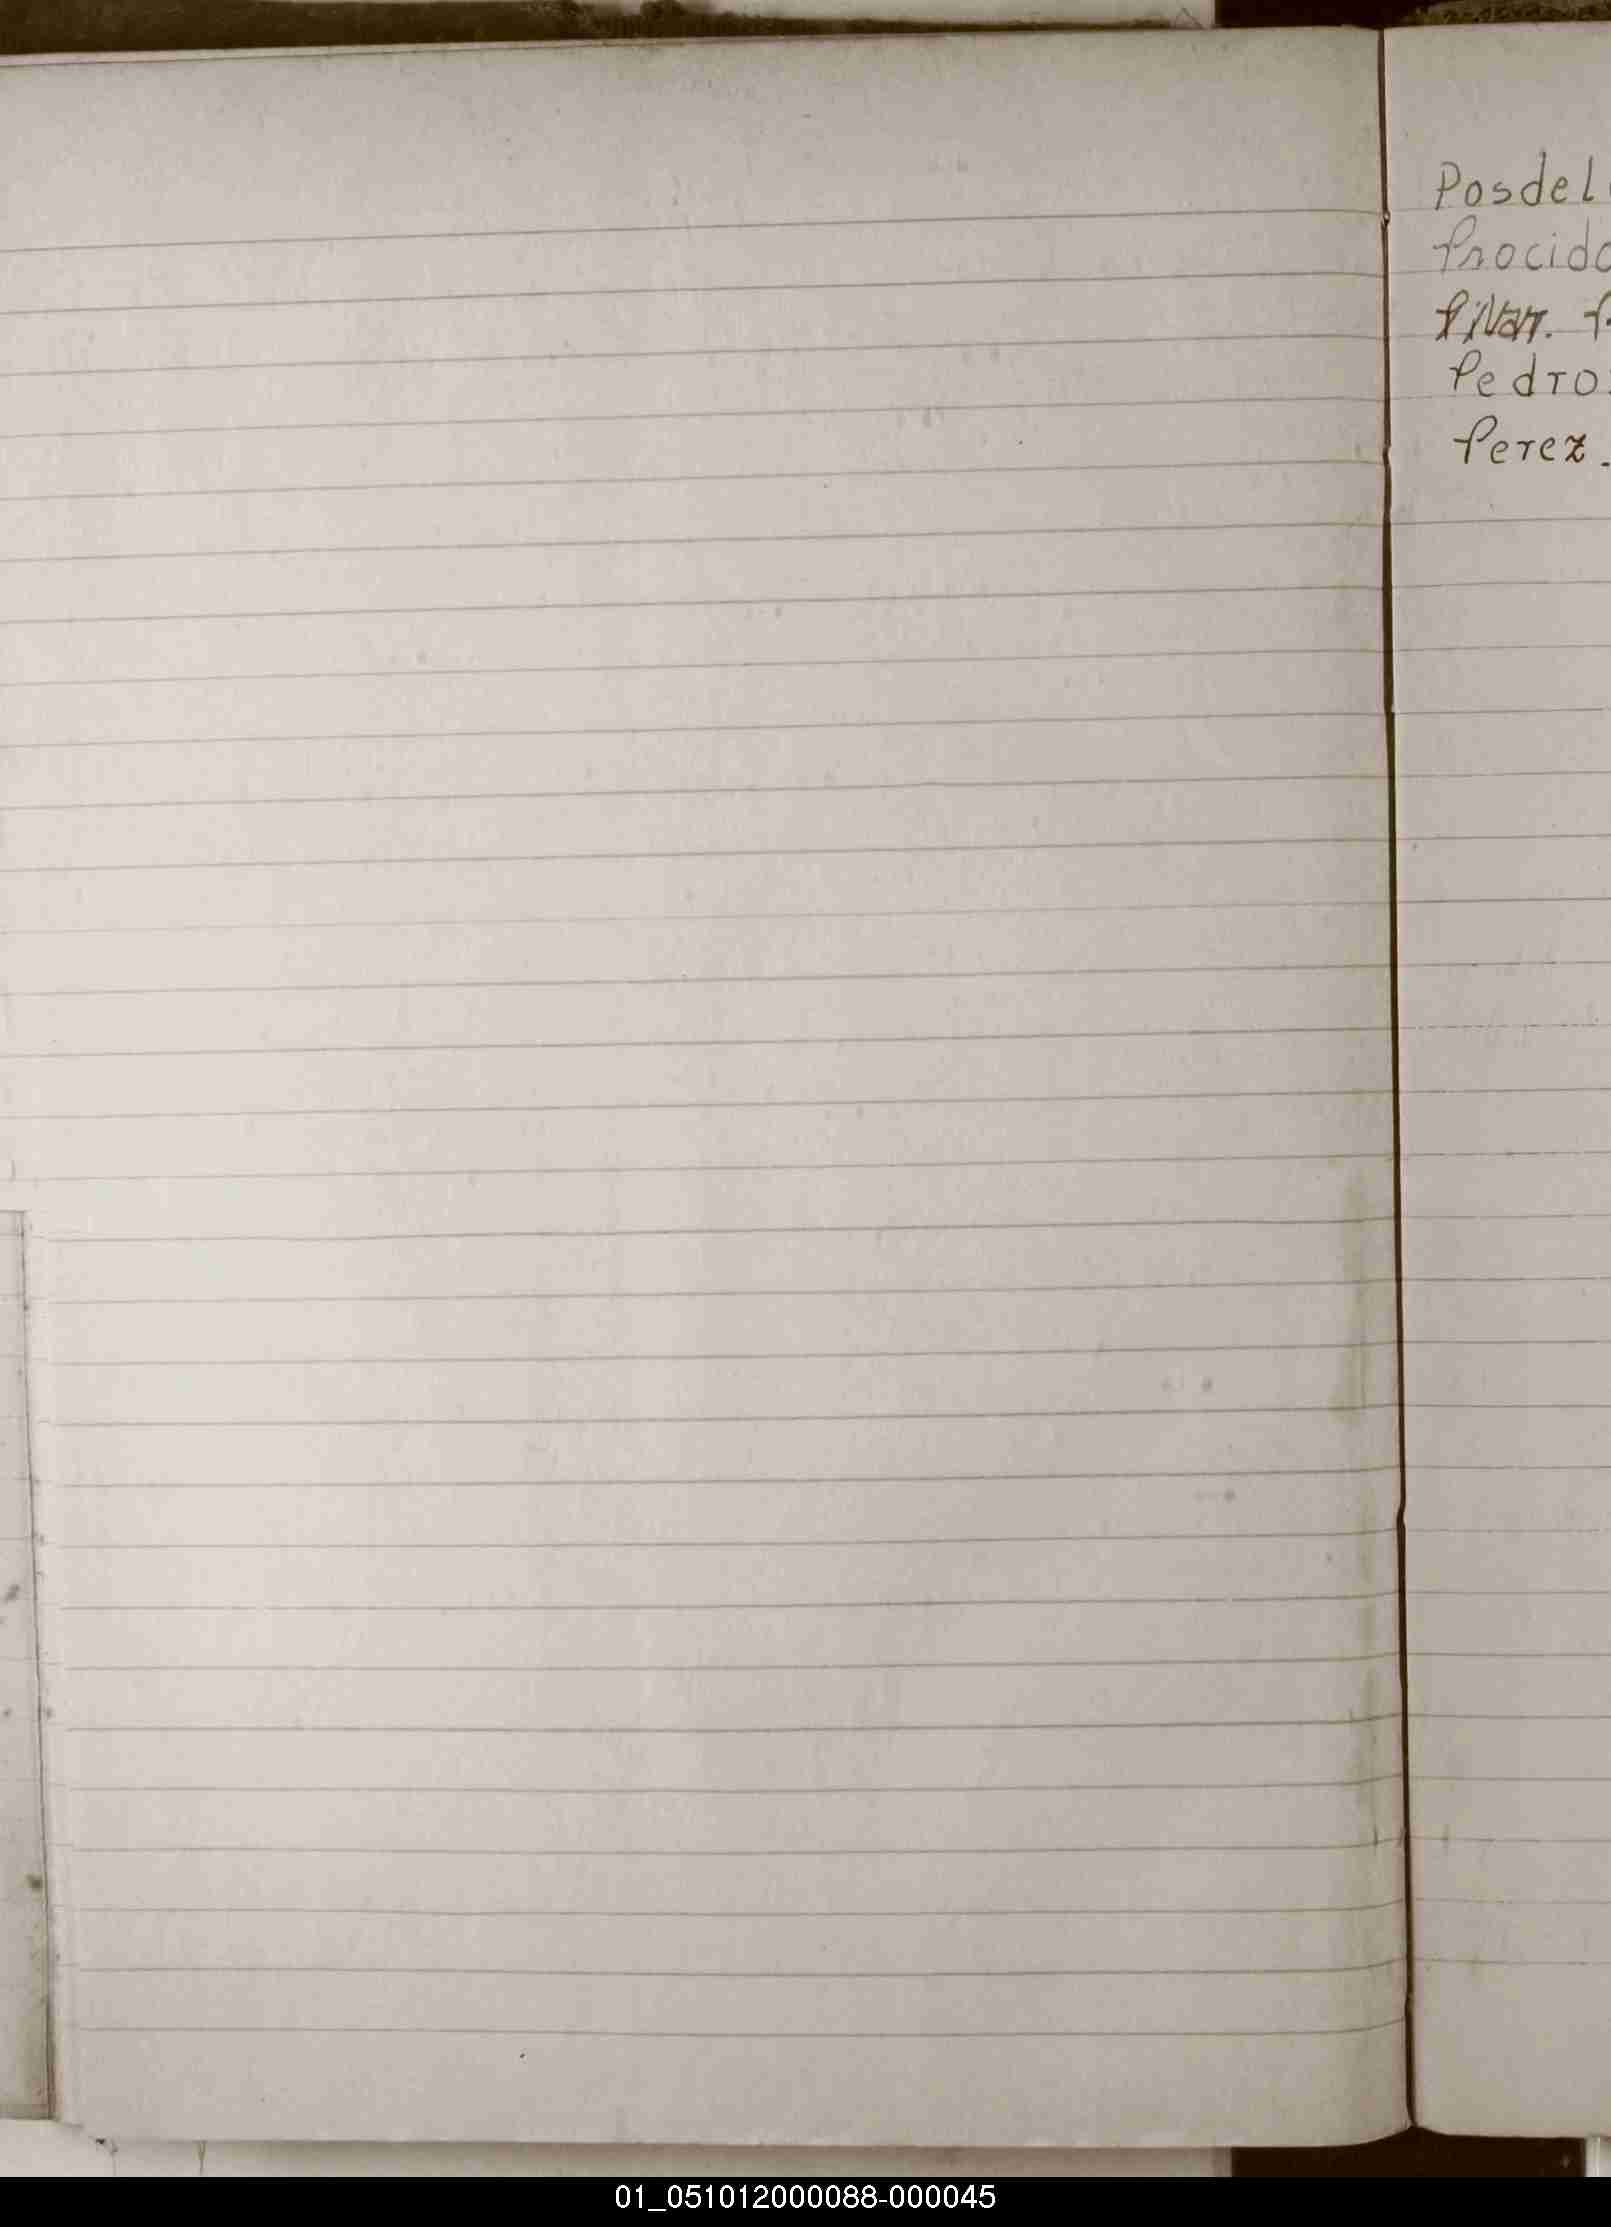 Posdel
Procido
Pivar. P
Pedro
Perez.
01_051012000088-000045